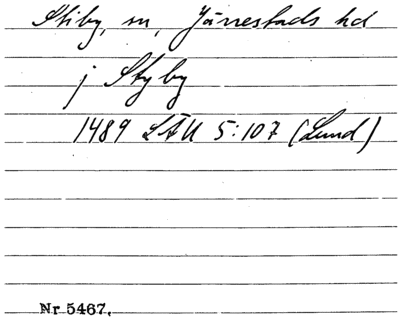 Stiby, sn, Järrestads hd
j Styby
1489 LÄU 5:107 (Lund)
Nr 5467.